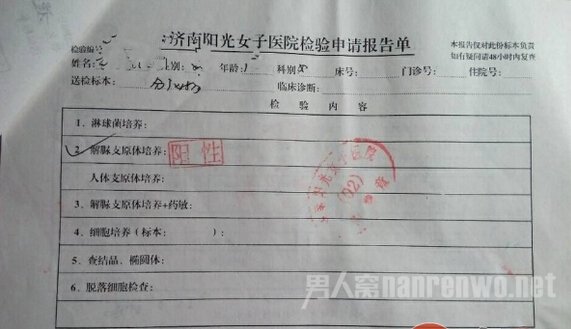 济南阳光女子医院检验申请报告单
本报告仅对此份标本负责
如有疑问请48小时内复查
检验编号
姓名: 性别: 年龄: 科别: 床号: 门诊号: 住院号:
送检标本: 分泌物 临床诊断:
检 验 内 容
1. 淋球菌培养:
2. 解脲支原体培养: 阳性
人体支原体培养:
3. 解脲支原体培养+药敏:
4. 细胞培养(标本: ):
5. 查结晶、椭圆体:
6. 脱落细胞检查:
男人窝nanrenwo.net